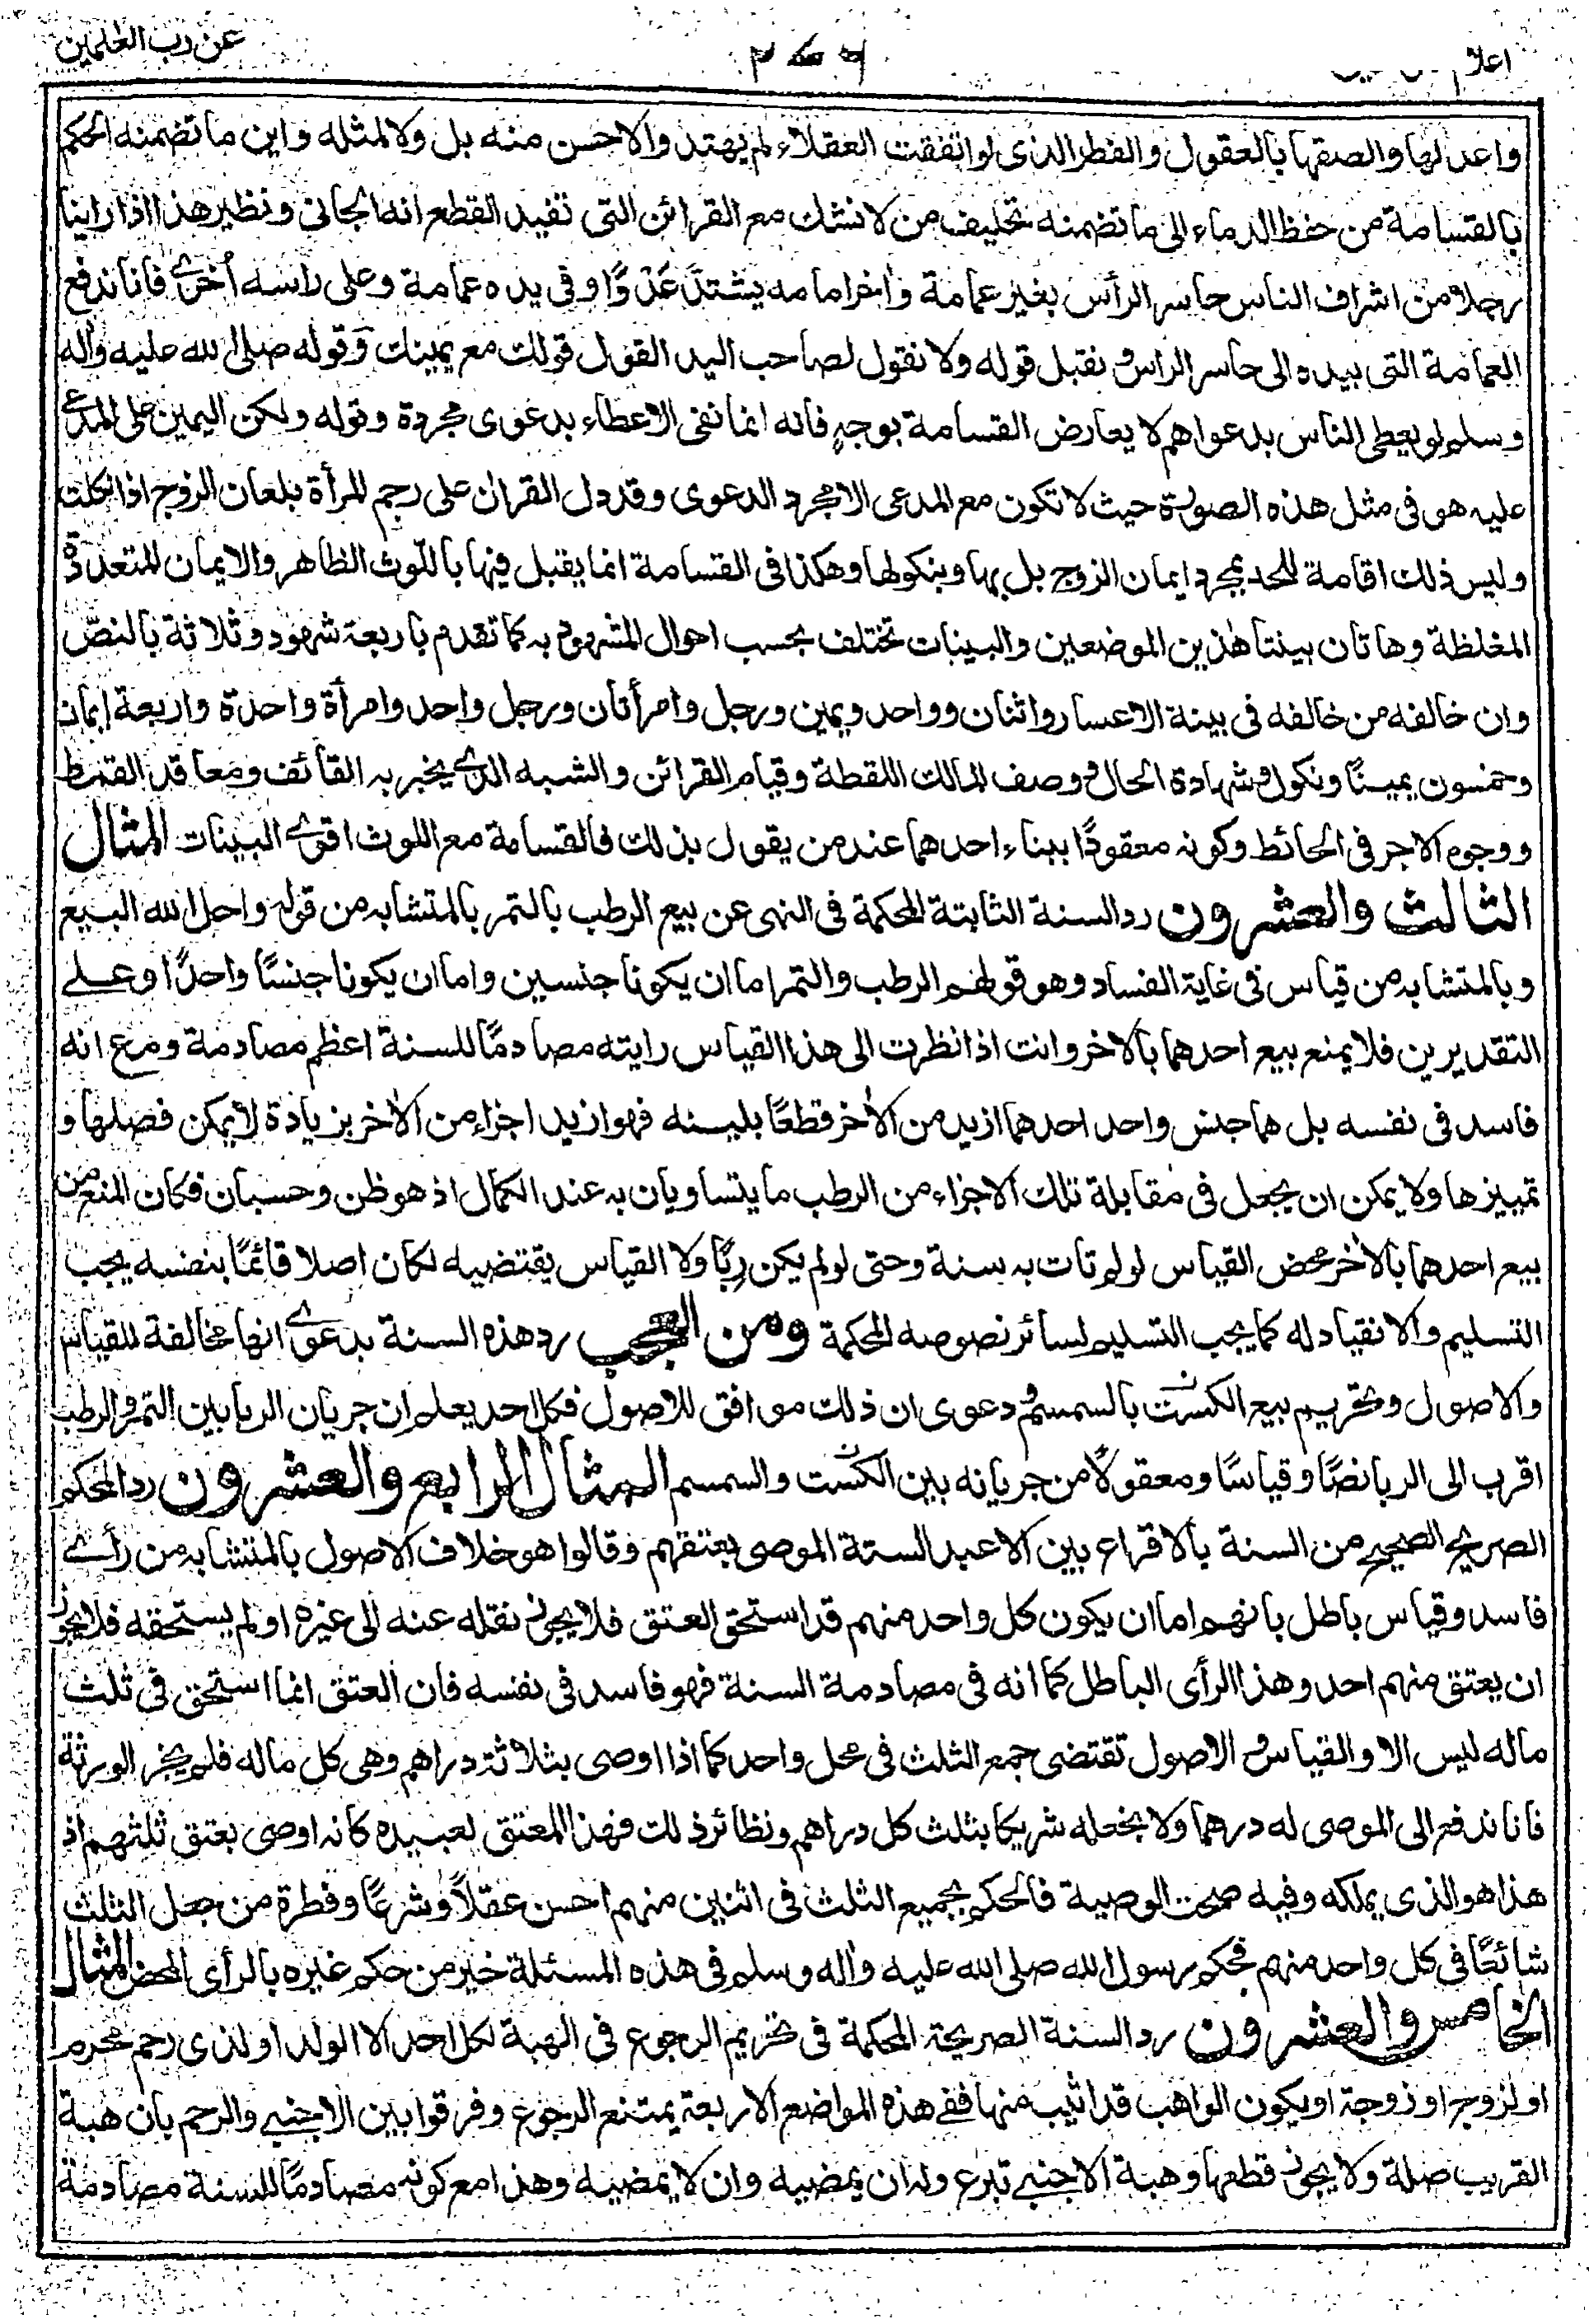 اعلا
عن رب العلمين
واعدلها والصقها بالعقول والفطر الذى لو اتفقت العقلاء لم يهتدوا لاحسن منه بل ولا لمثله واين ما تضمنه الحكم
بالقسامة من حفظ الدماء الى ما تضمنه تحليف من لا نشك مع القرائن التى تفيد القطع انه الجانى ونظير هذا اذا راينا
رجلا من اشراف الناس حاسر الرأس بغير عمامة واخر امامه يشتد عَدْوًا وفى يده عمامة وعلى راسه اُخرے فانا ندفع
العمامة التى بيده الى حاسر الراس و نقبل قوله ولا نقول لصاحب اليد القول قولك مع يمينك وقوله صلى الله عليه واٰله
وسلم لو يعطى الناس بدعواهم لا يعارض القسامة بوجهٍ فانه انما نفى الاعطاء بدعوى مجردة وقوله ولكن اليمين على المدعے
عليه هو فى مثل هذه الصورة حيث لا تكون مع المدعى الا مجرد الدعوى وقد دل القران على رجم المرأة بلعان الزوج اذا نكلت
وليس ذلك اقامة للحد بمجرد ايمان الزوج بل بها وبنكولها وهكذا فى القسامة انما يقبل فيها باللّوث الظاهر والايمان المتعددة
المغلظة وهاتان بينتا هٰذين الموضعين والبينات تختلف بحسب احوال المشهود به كما تقدم باربعة شهود وثلاثة بالنصّ
وان خالفه من خالفه فى بينة الاعسار واثنان وواحد ويمين ورجل وامرأتان ورجل واحد وامرأة واحدة واربعة ايمان
وخمسون يمينًا ونكول وشهادة الحال و وصف المالك اللقطة وقيام القرائن والشبه الذے يخبر به القائف ومعاقد القمط
ووجوه الاجر فى الحائط وكونه معقودًا ببناء احدهما عند من يقول بذلك فالقسامة مع اللوث اقوے البينات المثال
الثالث والعشرون رد السنة الثابتة المحكمة فى النهى عن بيع الرطب بالتمر بالمتشابه من قوله واحل الله البيع
وبالمتشابه من قياس فى غاية الفساد وهو قولهم الرطب والتمر اما ان يكونا جنسين واما ان يكونا جنسًا واحدًا وعلے
التقديرين فلا يمنع بيع احدهما بالاخر وانت اذا نظرت الى هذا القياس رايته مصادمًا للسنة اعظم مصادمة ومع انه
فاسد فى نفسه بل هما جنس واحد احدهما ازيد من الاٰخر قطعًا بلينه فهو ازيد اجزاء من الاٰخر بزيادة لا يمكن فصلها و
تمييزها ولا يمكن ان يجعل فى مقابلة تلك الاجزاء من الرطب ما يتساويان به عند الكمال اذ هو ظن وحسبان فكان المنع من
بيع احدهما بالاٰخر محض القياس لو لم تات به سنة وحتى لو لم يكن رِبًا ولا القياس يقتضيه لكان اصلا قائمًا بنفسه يجب
التسليم والانقياد له كما يجب التسليم لسائر نصوصه المحكمة ومن العجب رد هذه السنة بدعوے انها مخالفة للقياس
والاصول وتحريم بيع الكسب بالسمسم و دعوى ان ذلك موافق للاصول فكل احد يعلم ان جريان الربا بين التمر والرطب
اقرب الى الربا نصًا وقياسًا ومعقولًا من جريانه بين الكسب والسمسم المثال الرابع والعشرون رد المحكم
الصريح الصحيح من السنة بالاقراع بين الاعبد الستة الموصى بعتقهم وقالوا هو خلاف الاصول بالمتشابه من رأے
فاسد وقياس باطل بانهم اما ان يكون كل واحد منهم قد استحق العتق فلا يجوز نقله عنه الى غيره او لم يستحقه فلا يجوز
ان يعتق منهم احد وهذا الرأى الباطل كما انه فى مصادمة السنة فهو فاسد فى نفسه فان العتق انما استحق فى ثلث
ماله ليس الا والقياس و الاصول تقتضى جمع الثلث فى محل واحد كما اذا اوصى بثلاثة دراهم وهى كل ماله فلم يجز الورثة
فانا ندفع الى الموصى له درهما ولا نجعله شريكا بثلث كل دراهم ونظائر ذلك فهذا المعتق لعبيده كانه اوصى بعتق ثلثهم اذ
هذا هو الذى يملكه وفيه صحت الوصية فالحكم بجميع الثلث فى اثنين منهم احسن عقلًا وشرعًا وفطرة من جعل الثلث
شائعًا فى كل واحد منهم فحكم رسول الله صلى الله عليه واٰله وسلم فى هذه المسئلة خير من حكم غيره بالرأى المحض المثال
الخامس والعشرون رد السنة الصريحة المحكمة فى تحريم الرجوع فى الهبة لكل احد الا الولد او لذى رحم محرم
او لزوج او زوجة او يكون الواهب قد اثيب منها ففے هذه المواضع الاربعة يمتنع الرجوع وفرقوا بين الاجنبے والرحم بان هبة
القريب صلة ولا يجوز قطعها وهبة الاجنبے تبرع وله ان يمضيه وان لا يمضيه وهذا مع كونه مصادمًا للسنة مصادمة